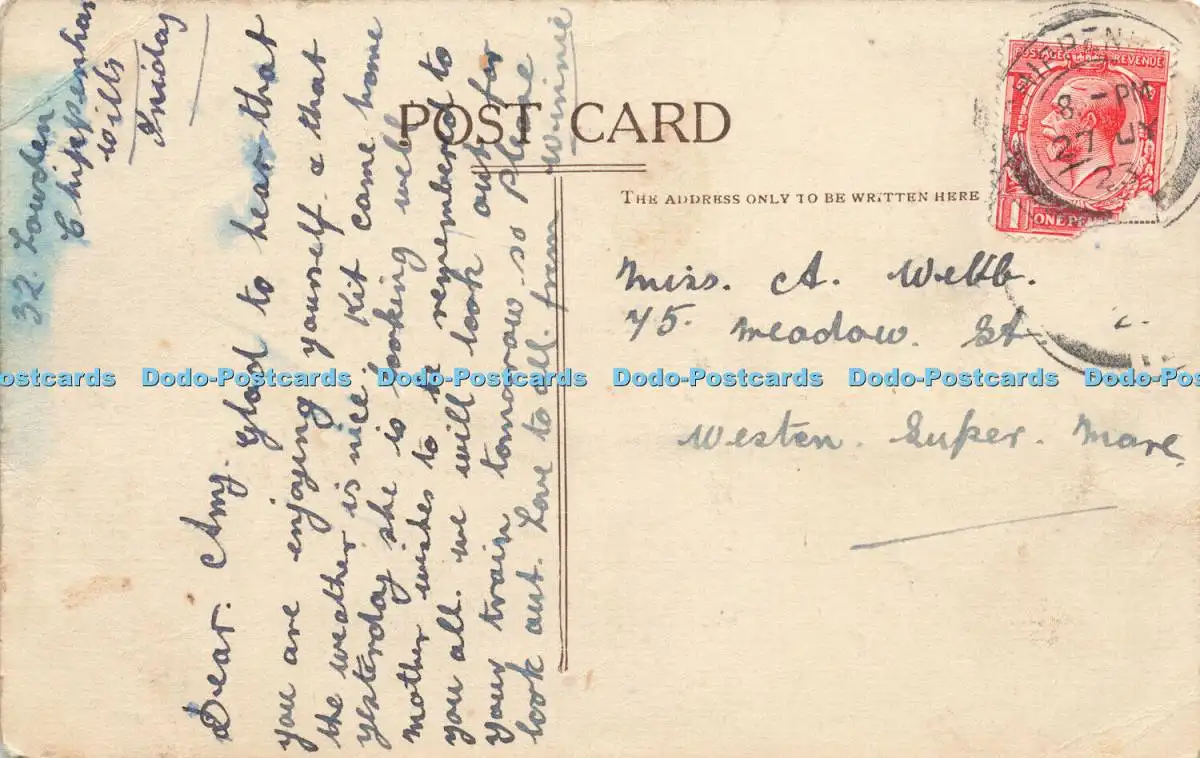 32. Lowden.
Chippenham
Wilts
Friday
Dear. Amy. Glad to hear that
you are enjoying yourself & that
the weather is nice. Kit came home
yesterday she is looking well
Mother wishes to be remembered to
you all. we will look out for
your train tomorrow so please
look out. Love to all. from
Winnie
POST CARD
THE ADDRESS ONLY TO BE WRITTEN HERE
POSTAGE REVENUE
8 - PM
27 JY
ONE PENNY
1
Miss. A. Webb.
75. Meadow. St.
Westen. Super. Mare.
Dodo-Postcards Dodo-Postcards Dodo-Postcards Dodo-Postcards Dodo-Postcards